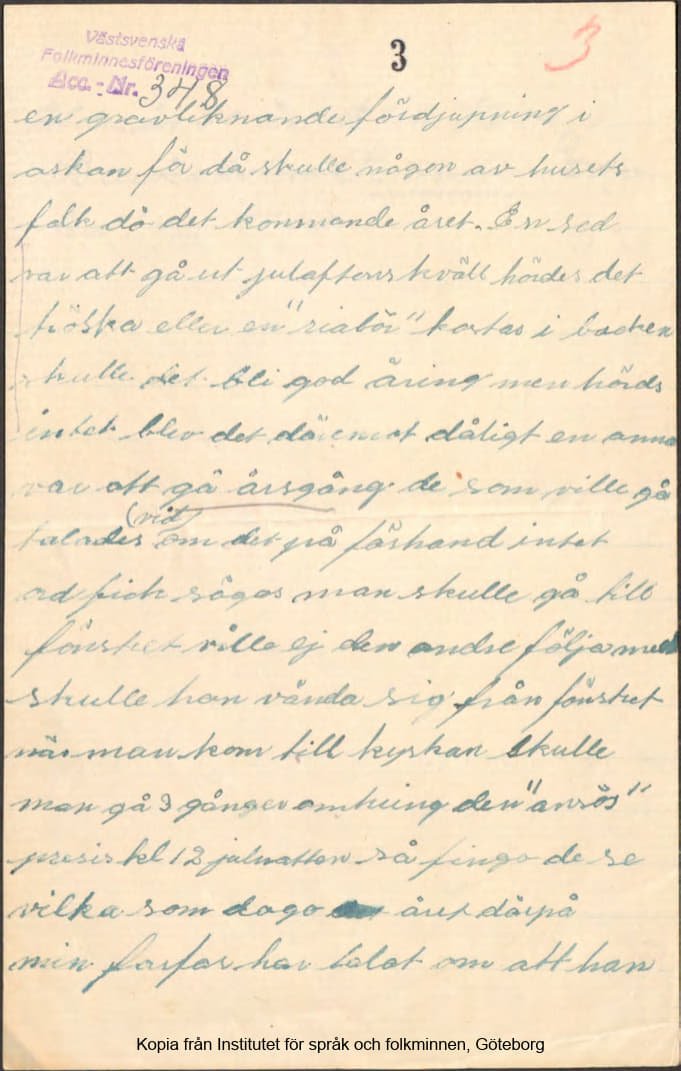 Västsvenska
Folkminnesföreningen
Acc.-Nr. 348
3
3
en gravliknande fördjupning i
askan få då skulle någon av husets
folk dö det kommande året. En sed
var att gå ut julaftons kväll hördes det
tröska eller en "riabör" kastas i backen
skulle det bli god åring men hörds
intet blev det däremot dåligt en anna
var att gå årsgång de som ville gå
talades (vid) om det på förhand intet
ord fick sägas man skulle gå till
fönstret ville ej den andre följa med
skulle han vända sig från fönstret
när man kom till kyrkan skulle
man gå 3 gånger omkring den "ansös"
presis kl 12 julnatten så fingo de se
vilka som dogo året därpå
min farfar har talat om att han
Kopia från Institutet för språk och folkminnen, Göteborg